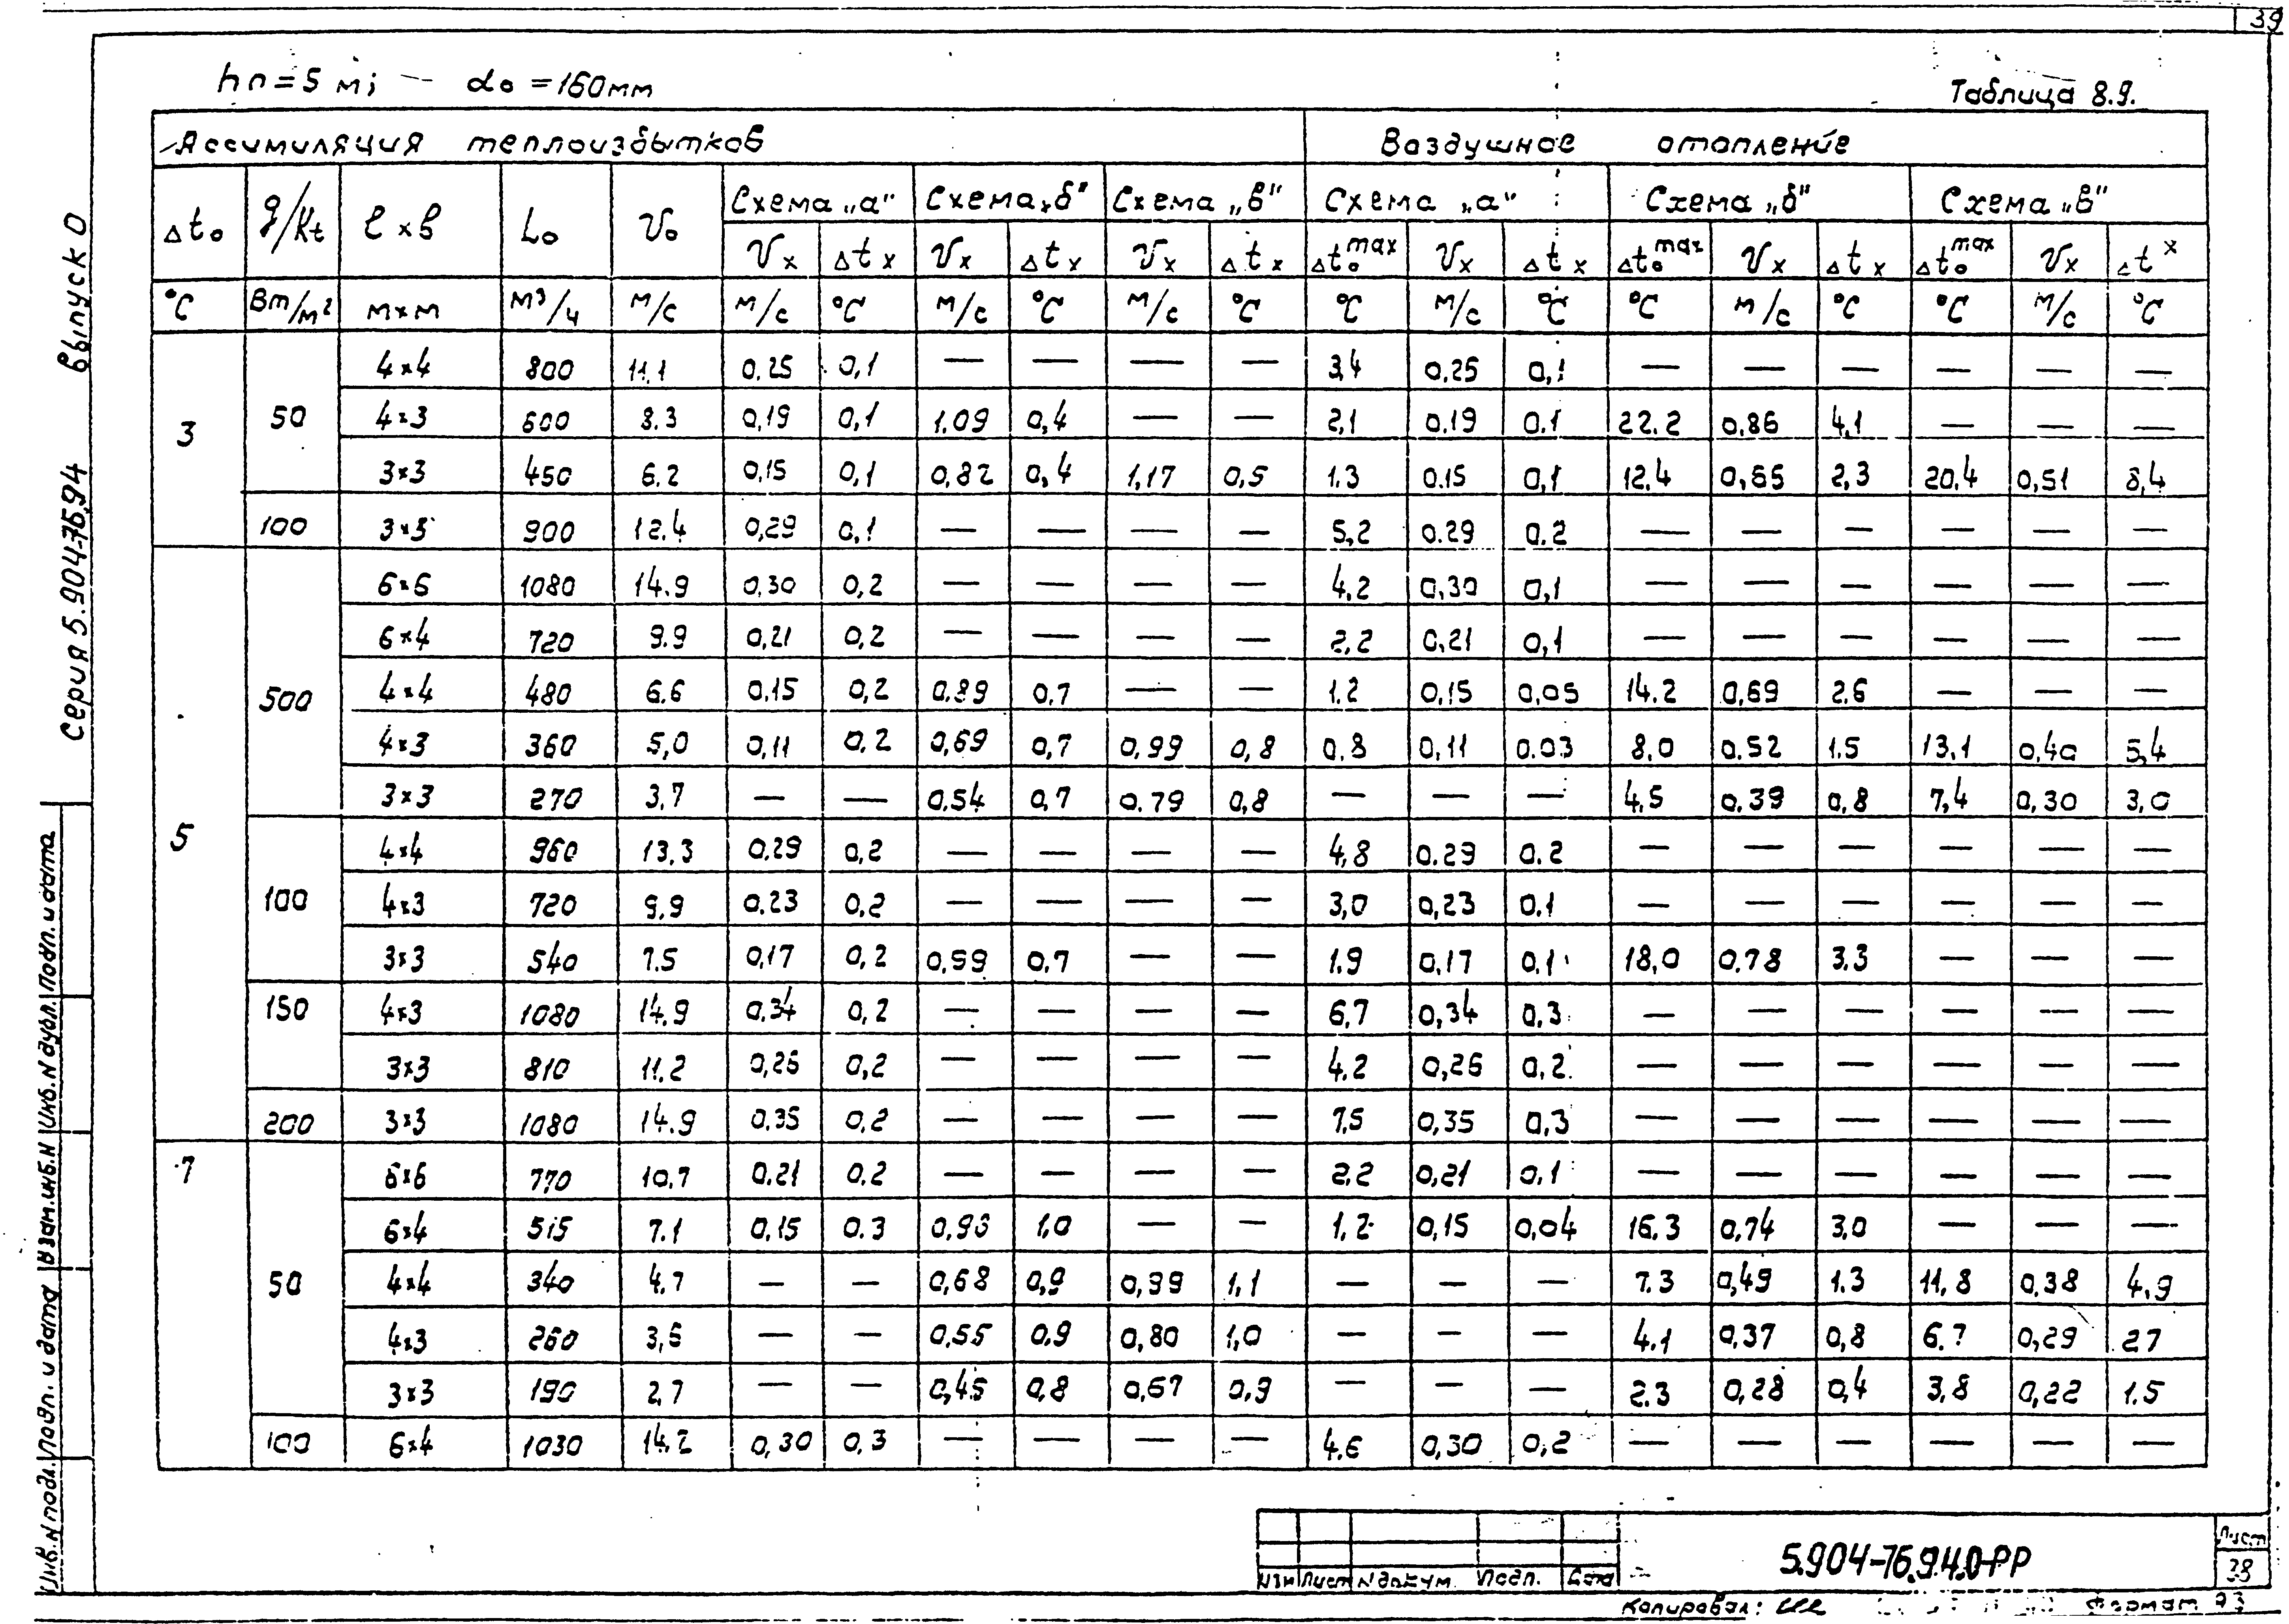 39
hп=5 м; do =160мм
Таблица 8.9.
Ассимиляция теплоизбытков Воздушное отопление
Δto q/Kt l×в Lo Vo Схема „а" Схема „б" Схема „в" Схема „а" Схема „б" Схема „в"
Vx Δtx Vx Δtx Vx Δtx Δto max Vx Δtx Δto max Vx Δtx Δto max Vx Δt x
°C Вт/м² м×м м³/ч м/с м/с °C м/с °C м/с °C °C м/с °C °C м/с °C °C м/с °C
3 50 4×4 800 11.1 0.25 0,1 — — — — 3,4 0.25 0,1 — — — — — —
4×3 600 8.3 0,19 0,1 1.09 0,4 — — 2,1 0.19 0.1 22.2 0,86 4,1 — — —
3×3 450 6.2 0,15 0,1 0,82 0,4 1,17 0,5 1.3 0.15 0,1 12.4 0,65 2,3 20,4 0,51 8,4
100 3×3 900 12.4 0,29 0,1 — — — — 5,2 0.29 0.2 — — — — — —
5 500 6×6 1080 14.9 0,30 0,2 — — — — 4,2 0,30 0,1 — — — — — —
6×4 720 9.9 0,21 0,2 — — — — 2,2 0,21 0,1 — — — — — —
4×4 480 6.6 0,15 0,2 0,89 0,7 — — 1,2 0,15 0,05 14.2 0,69 2,6 — — —
4×3 360 5,0 0,11 0,2 0,69 0,7 0,99 0,8 0,8 0,11 0.03 8,0 0.52 1.5 13,1 0,40 5,4
3×3 270 3,7 — — 0,54 0,7 0.79 0,8 — — — 4,5 0.39 0,8 7,4 0,30 3,0
100 4×4 960 13,3 0.29 0,2 — — — — 4,8 0.29 0.2 — — — — — —
4×3 720 9,9 0.23 0,2 — — — — 3,0 0,23 0.1 — — — — — —
3×3 540 7.5 0,17 0,2 0,99 0,7 — — 1.9 0,17 0,1 18,0 0.78 3.3 — — —
150 4×3 1080 14.9 0.34 0,2 — — — — 6,7 0,34 0,3 — — — — — —
3×3 810 11.2 0,26 0,2 — — — — 4.2 0,26 0,2 — — — — — —
200 3×3 1080 14.9 0.35 0,2 — — — — 7,5 0,35 0,3 — — — — — —
7 50 6×6 770 10.7 0.21 0,2 — — — — 2,2 0,21 0,1 — — — — — —
6×4 515 7.1 0,15 0.3 0,96 1,0 — — 1,2 0,15 0,04 16.3 0,74 3,0 — — —
4×4 340 4,7 — — 0,68 0,9 0,99 1,1 — — — 7.3 0,49 1.3 11,8 0,38 4,9
4×3 260 3,6 — — 0,55 0.9 0,80 1,0 — — — 4.1 0,37 0,8 6.7 0,29 27
3×3 190 2,7 — — 0,45 0,8 0,67 0,9 — — — 2.3 0,28 0,4 3,8 0,22 1.5
100 6×4 1030 14.2 0,30 0,3 — — — — 4,6 0,30 0,2 — — — — — —
Серия 5.904-75.94 выпуск 0
Инв.N подл. Подп. и дата Взам.инв.N Инв.N дубл. Подп. и дата
Изм Лист N докум. Подп. Дата
5.904-76.94.0-РР
Лист
38
Копировал: Формат А3